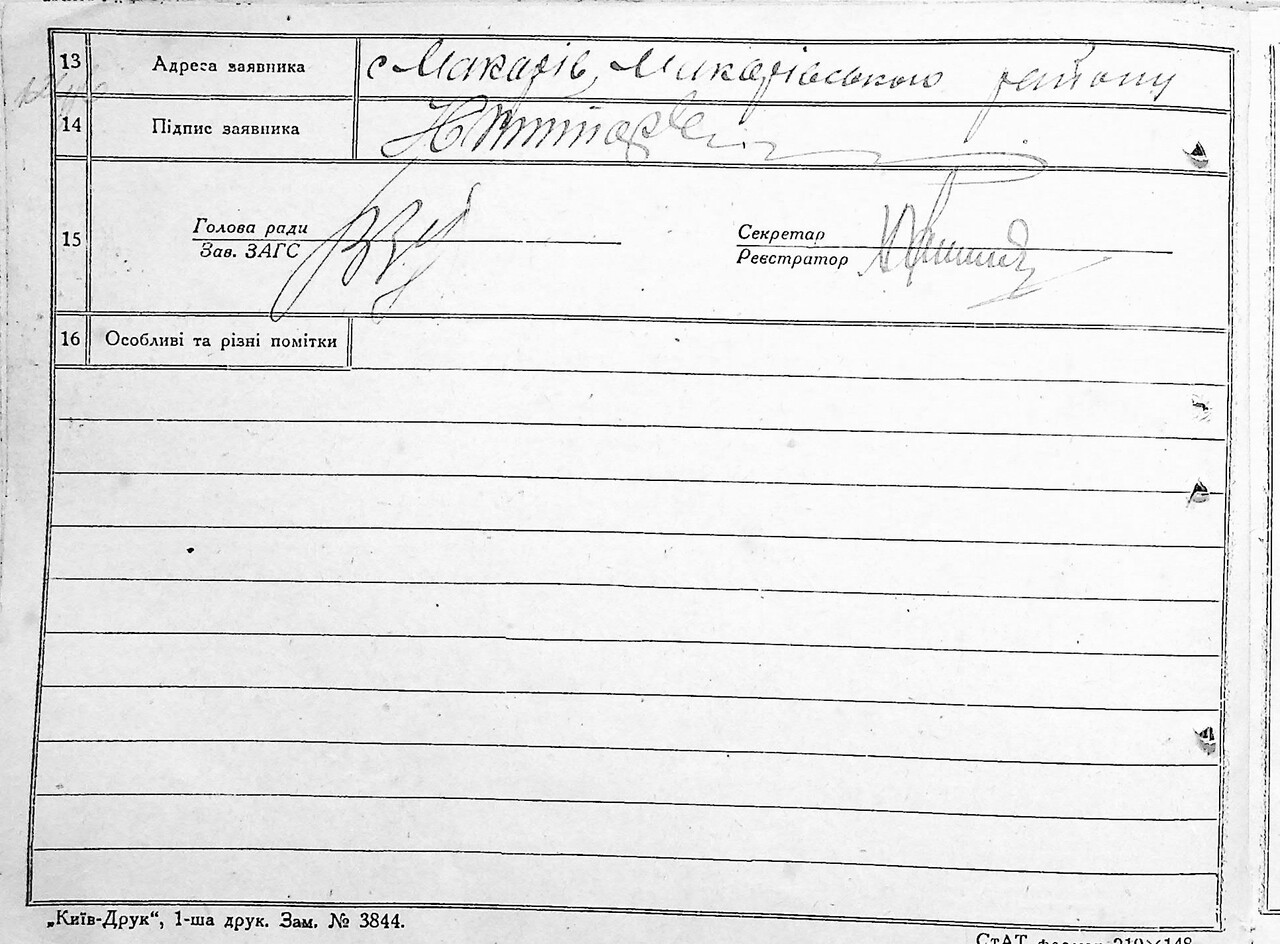 13 Адреса заявника с Макарів, Макарівського району
14 Підпис заявника
15 Голова ради
Зав. ЗАГС
Секретар
Реєстратор
16 Особливі та різні помітки
„Київ-Друк“, 1-ша друк. Зам. № 3844.
СтАТ формат 210×148